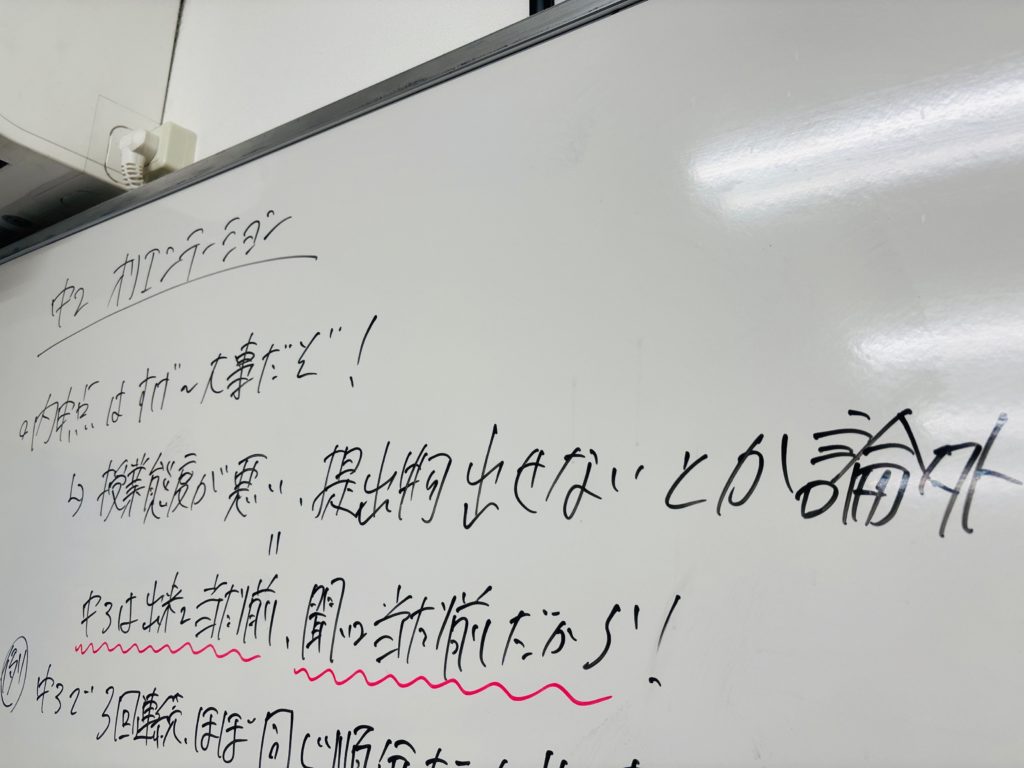 中2 オリエンテーション
○内申点はすげ〜大事だぞ!
↳授業態度が悪い、提出物出せないとか論外
=
中3は出来て当た前、聞いて当た前だから!
例 中3で3回連続、ほぼ同じ順位